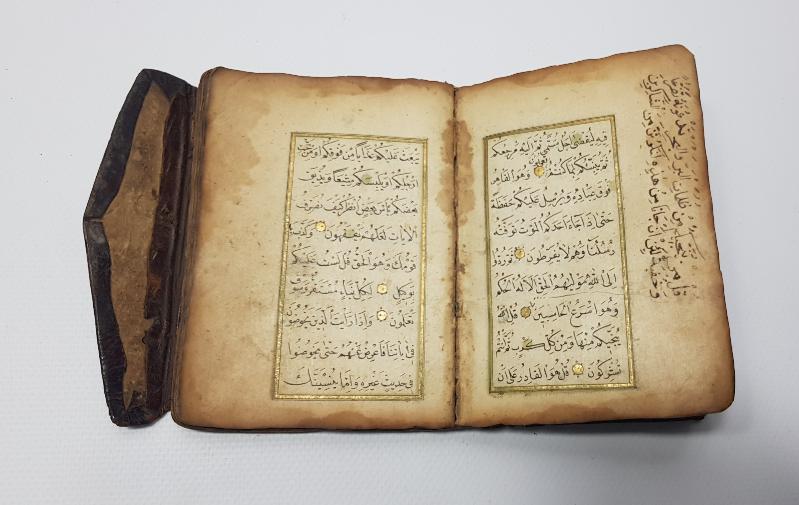 فِيهِ لِيُقْضٰى اَجَلٌ مُسَمًّى ثُمَّ اِلَيْهِ مَرْجِعُكُمْ
ثُمَّ يُنَبِّئُكُمْ بِمَا كُنْتُمْ تَعْمَلُونَ وَهُوَ الْقَاهِرُ
فَوْقَ عِبَادِهِ وَيُرْسِلُ عَلَيْكُمْ حَفَظَةً
حَتّٰى اِذَا جَاءَ اَحَدَكُمُ الْمَوْتُ تَوَفَّتْهُ
رُسُلُنَا وَهُمْ لَا يُفَرِّطُونَ ثُمَّ رُدُّوا
اِلَى اللّٰهِ مَوْلٰيهُمُ الْحَقِّ اَلَا لَهُ الْحُكْمُ
وَهُوَ اَسْرَعُ الْحَاسِبِينَ قُلِ اللّٰهُ
يُنَجِّيكُمْ مِنْهَا وَمِنْ كُلِّ كَرْبٍ ثُمَّ اَنْتُمْ
تُشْرِكُونَ قُلْ هُوَ الْقَادِرُ عَلٰى اَنْ
قل من ينجيكم من ظلمات البر والبحر تدعونه تضرعا
وخفية لئن انجانا من هذه لنكونن من الشاكرين
يَبْعَثَ عَلَيْكُمْ عَذَابًا مِنْ فَوْقِكُمْ اَوْ مِنْ تَحْتِ
اَرْجُلِكُمْ اَوْ يَلْبِسَكُمْ شِيَعًا وَيُذِيقَ
بَعْضَكُمْ بَاْسَ بَعْضٍ اُنْظُرْ كَيْفَ نُصَرِّفُ
الْاٰيَاتِ لَعَلَّهُمْ يَفْقَهُونَ وَكَذَّبَ بِهِ
قَوْمُكَ وَهُوَ الْحَقُّ قُلْ لَسْتُ عَلَيْكُمْ
بِوَكِيلٍ لِكُلِّ نَبَاءٍ مُسْتَقَرٌّ وَسَوْفَ
تَعْلَمُونَ وَاِذَا رَاَيْتَ الَّذِينَ يَخُوضُونَ
فِى اٰيَاتِنَا فَاَعْرِضْ عَنْهُمْ حَتّٰى يَخُوضُوا
فِى حَدِيثٍ غَيْرِهِ وَاِمَّا يُنْسِيَنَّكَ